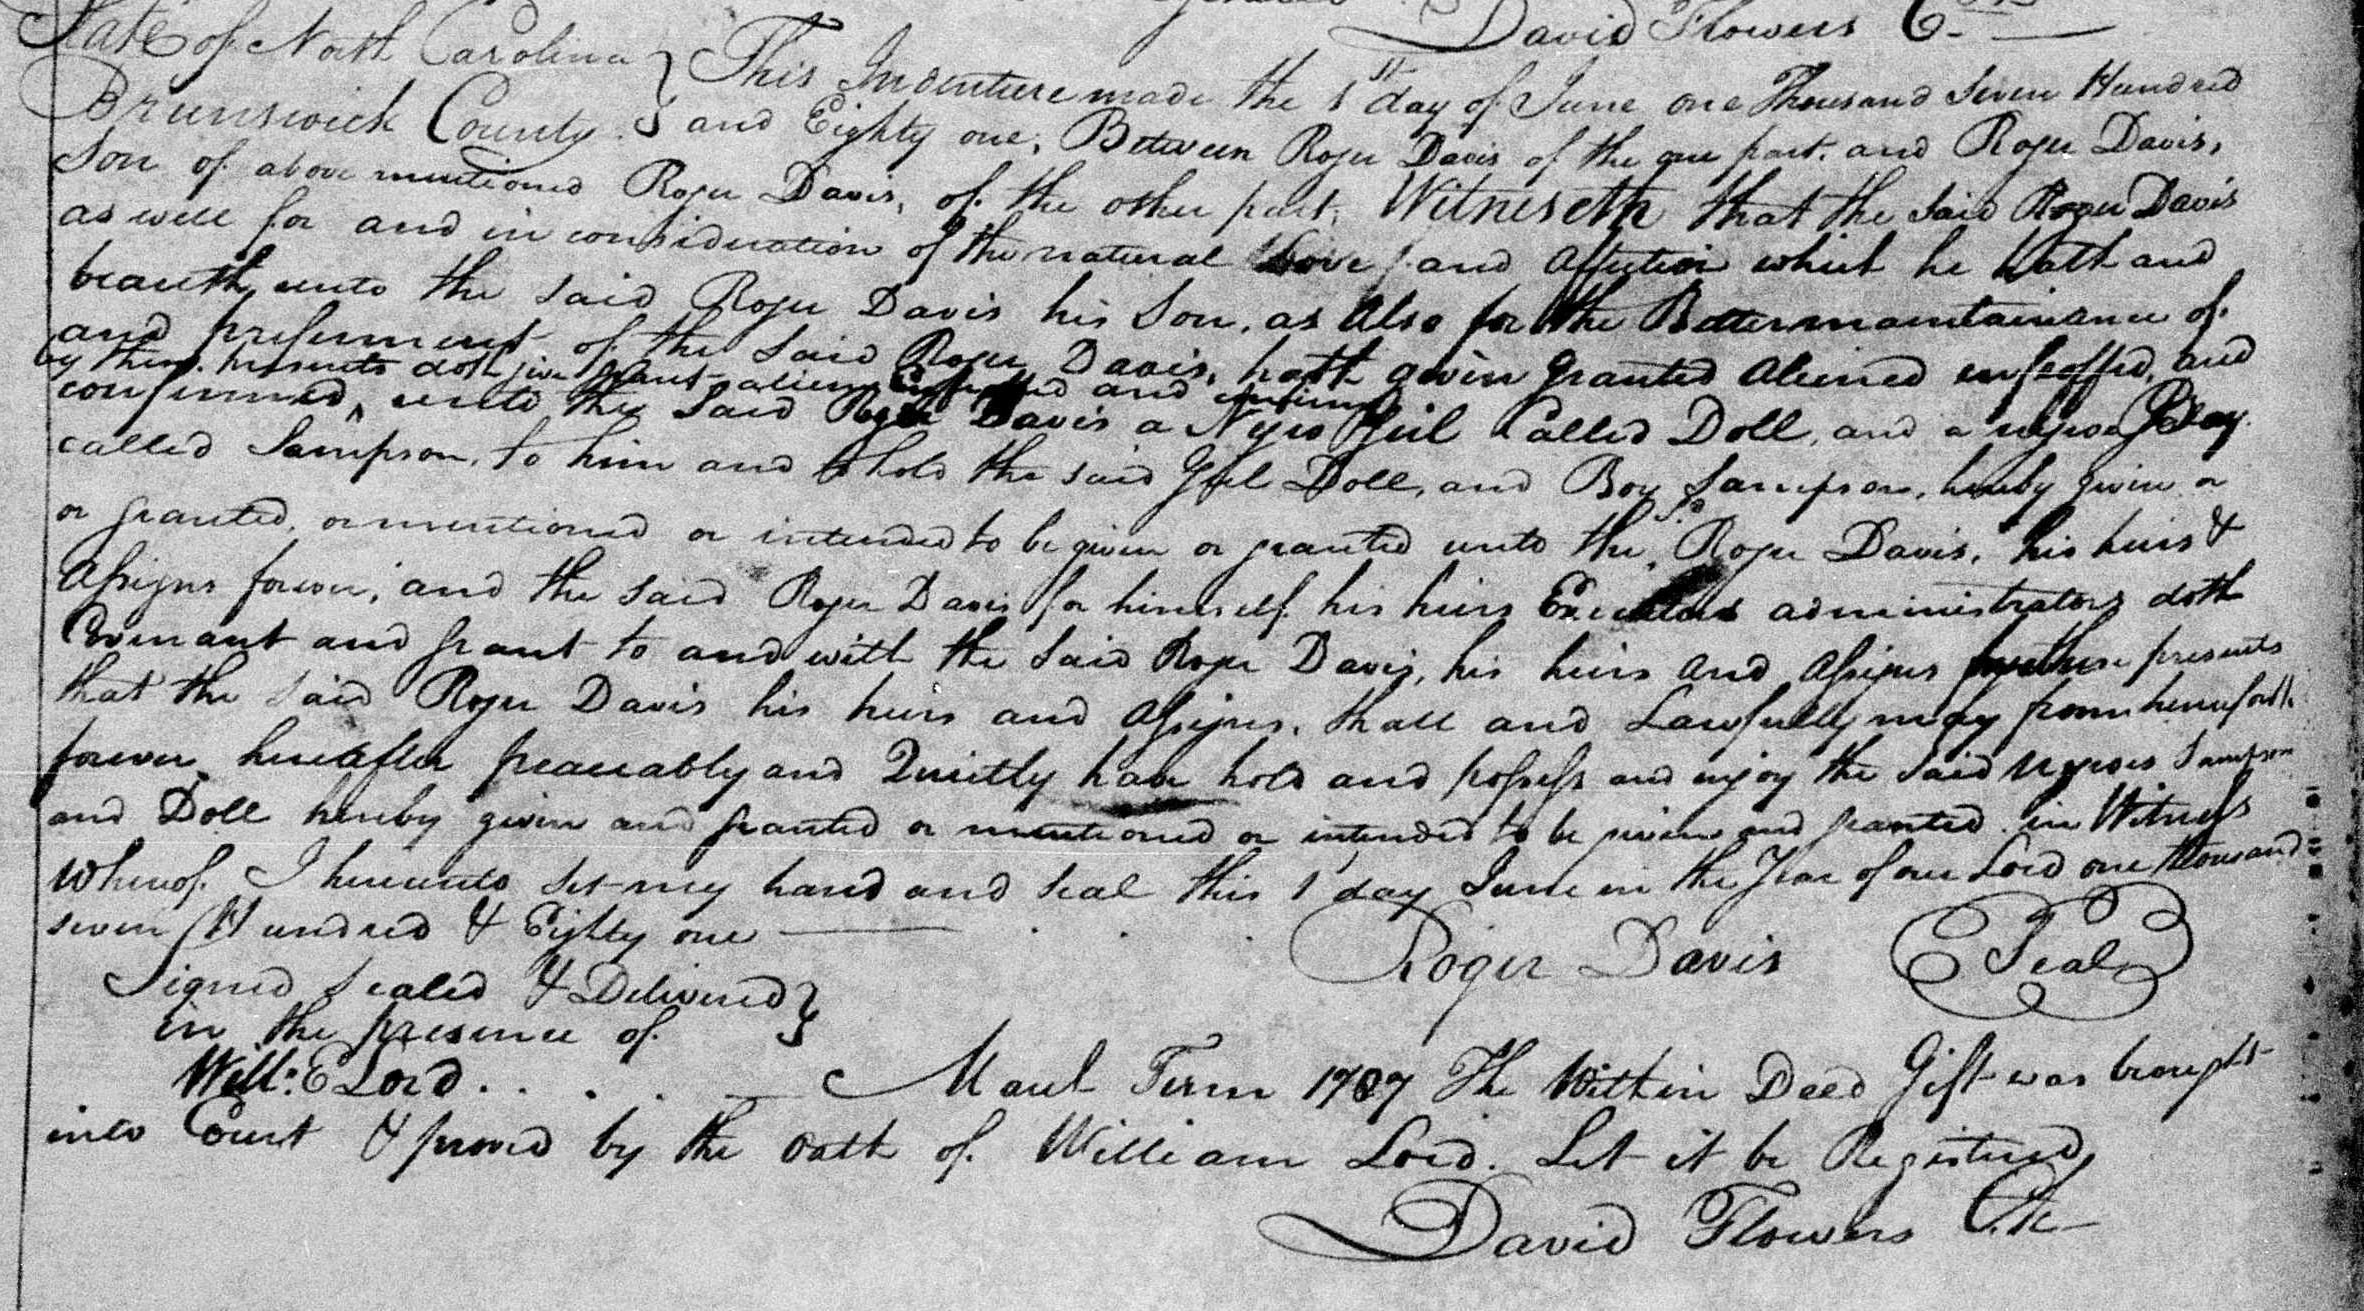 David Flowers C
State of North Carolina } This Indenture made the 1st day of June one Thousand Seven Hundred
Brunswick County } and Eighty one, Between Roger Davis of the one part. and Roger Davis,
Son of above mentioned Roger Davis, of the other part, Witneseth that the Said Roger Davis
as well for and in consideration of the natural Love and Affection which he hath and
beareth unto the Said Roger Davis his Son, as Also for the Better maintainance of
and preferment of the Said Roger Davis, hath given granted aliened enfeoffed, and
by these presents doth give grant alien Enfeoffed and confirm
confirmed ^ unto the Said Roger Davis a Negro Girl Called Doll, and a negroe Boy
called Sampson, to him and to hold the said Girl Doll, and Boy Sampson, hereby given or
or granted, or mentioned or intended to be given or granted unto the Sd Roger Davis, his heirs &
Assigns forever, and the Said Roger Davis for himself his heirs Executors administrators doth
Covenant and grant to and with the Said Roger Davis, his heirs and Assigns by these presents
that the Said Roger Davis his heirs and Assigns, shall and Lawfully may from henceforth
forever hereafter peaceably and Quietly have hold and possess and enjoy the Said negroes Sampson
and Doll hereby given and granted or mentioned or intended to be given and granted in Witness
Whereof I hereunto Set my hand and Seal this 1 day June in the Year of our Lord one thousand
seven Hundred & Eighty one
Roger Davis Seal
Signed Sealed & Delivered }
in the presence of }
Will: E Lord. . . . — March Term 1787 The Within Deed Gift was brought
into Court & proved by the Oath of William Lord. Let it be Registered
David Flowers Clk